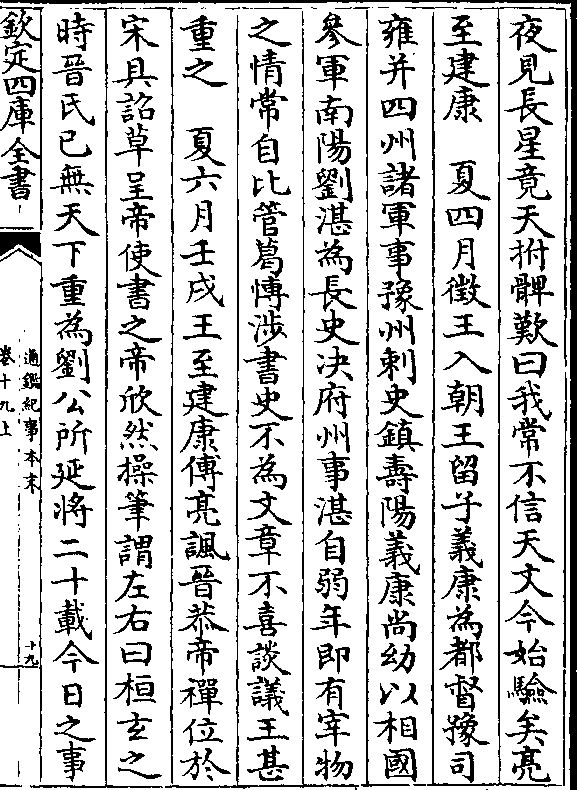 夜見長星竟天拊髀歎曰我常不信天文今始驗矣亮
至建康　夏四月徵王入朝王留子義康為都督豫司
雍并四州諸軍事豫州刺史鎮壽陽義康尚幼以相國
參軍南陽劉湛為長史决府州事湛自弱年即有宰物
之情常自比管葛博涉書史不為文章不喜談議王甚
重之　夏六月壬戌王至建康傅亮諷晉恭帝禪位於
宋具詔草呈帝使書之帝欣然操筆謂左右曰桓玄之
時晉氏已無天下重為劉公所延將二十載今日之事
欽定四庫全書
通鑑紀事本末
卷十九上
十九